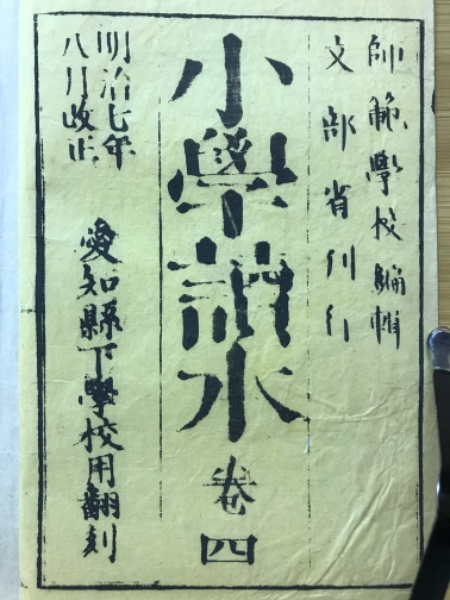 師範學校編輯
文部省刊行
小學讀本
卷四
明治七年
八月改正
愛知縣下學校用翻刻